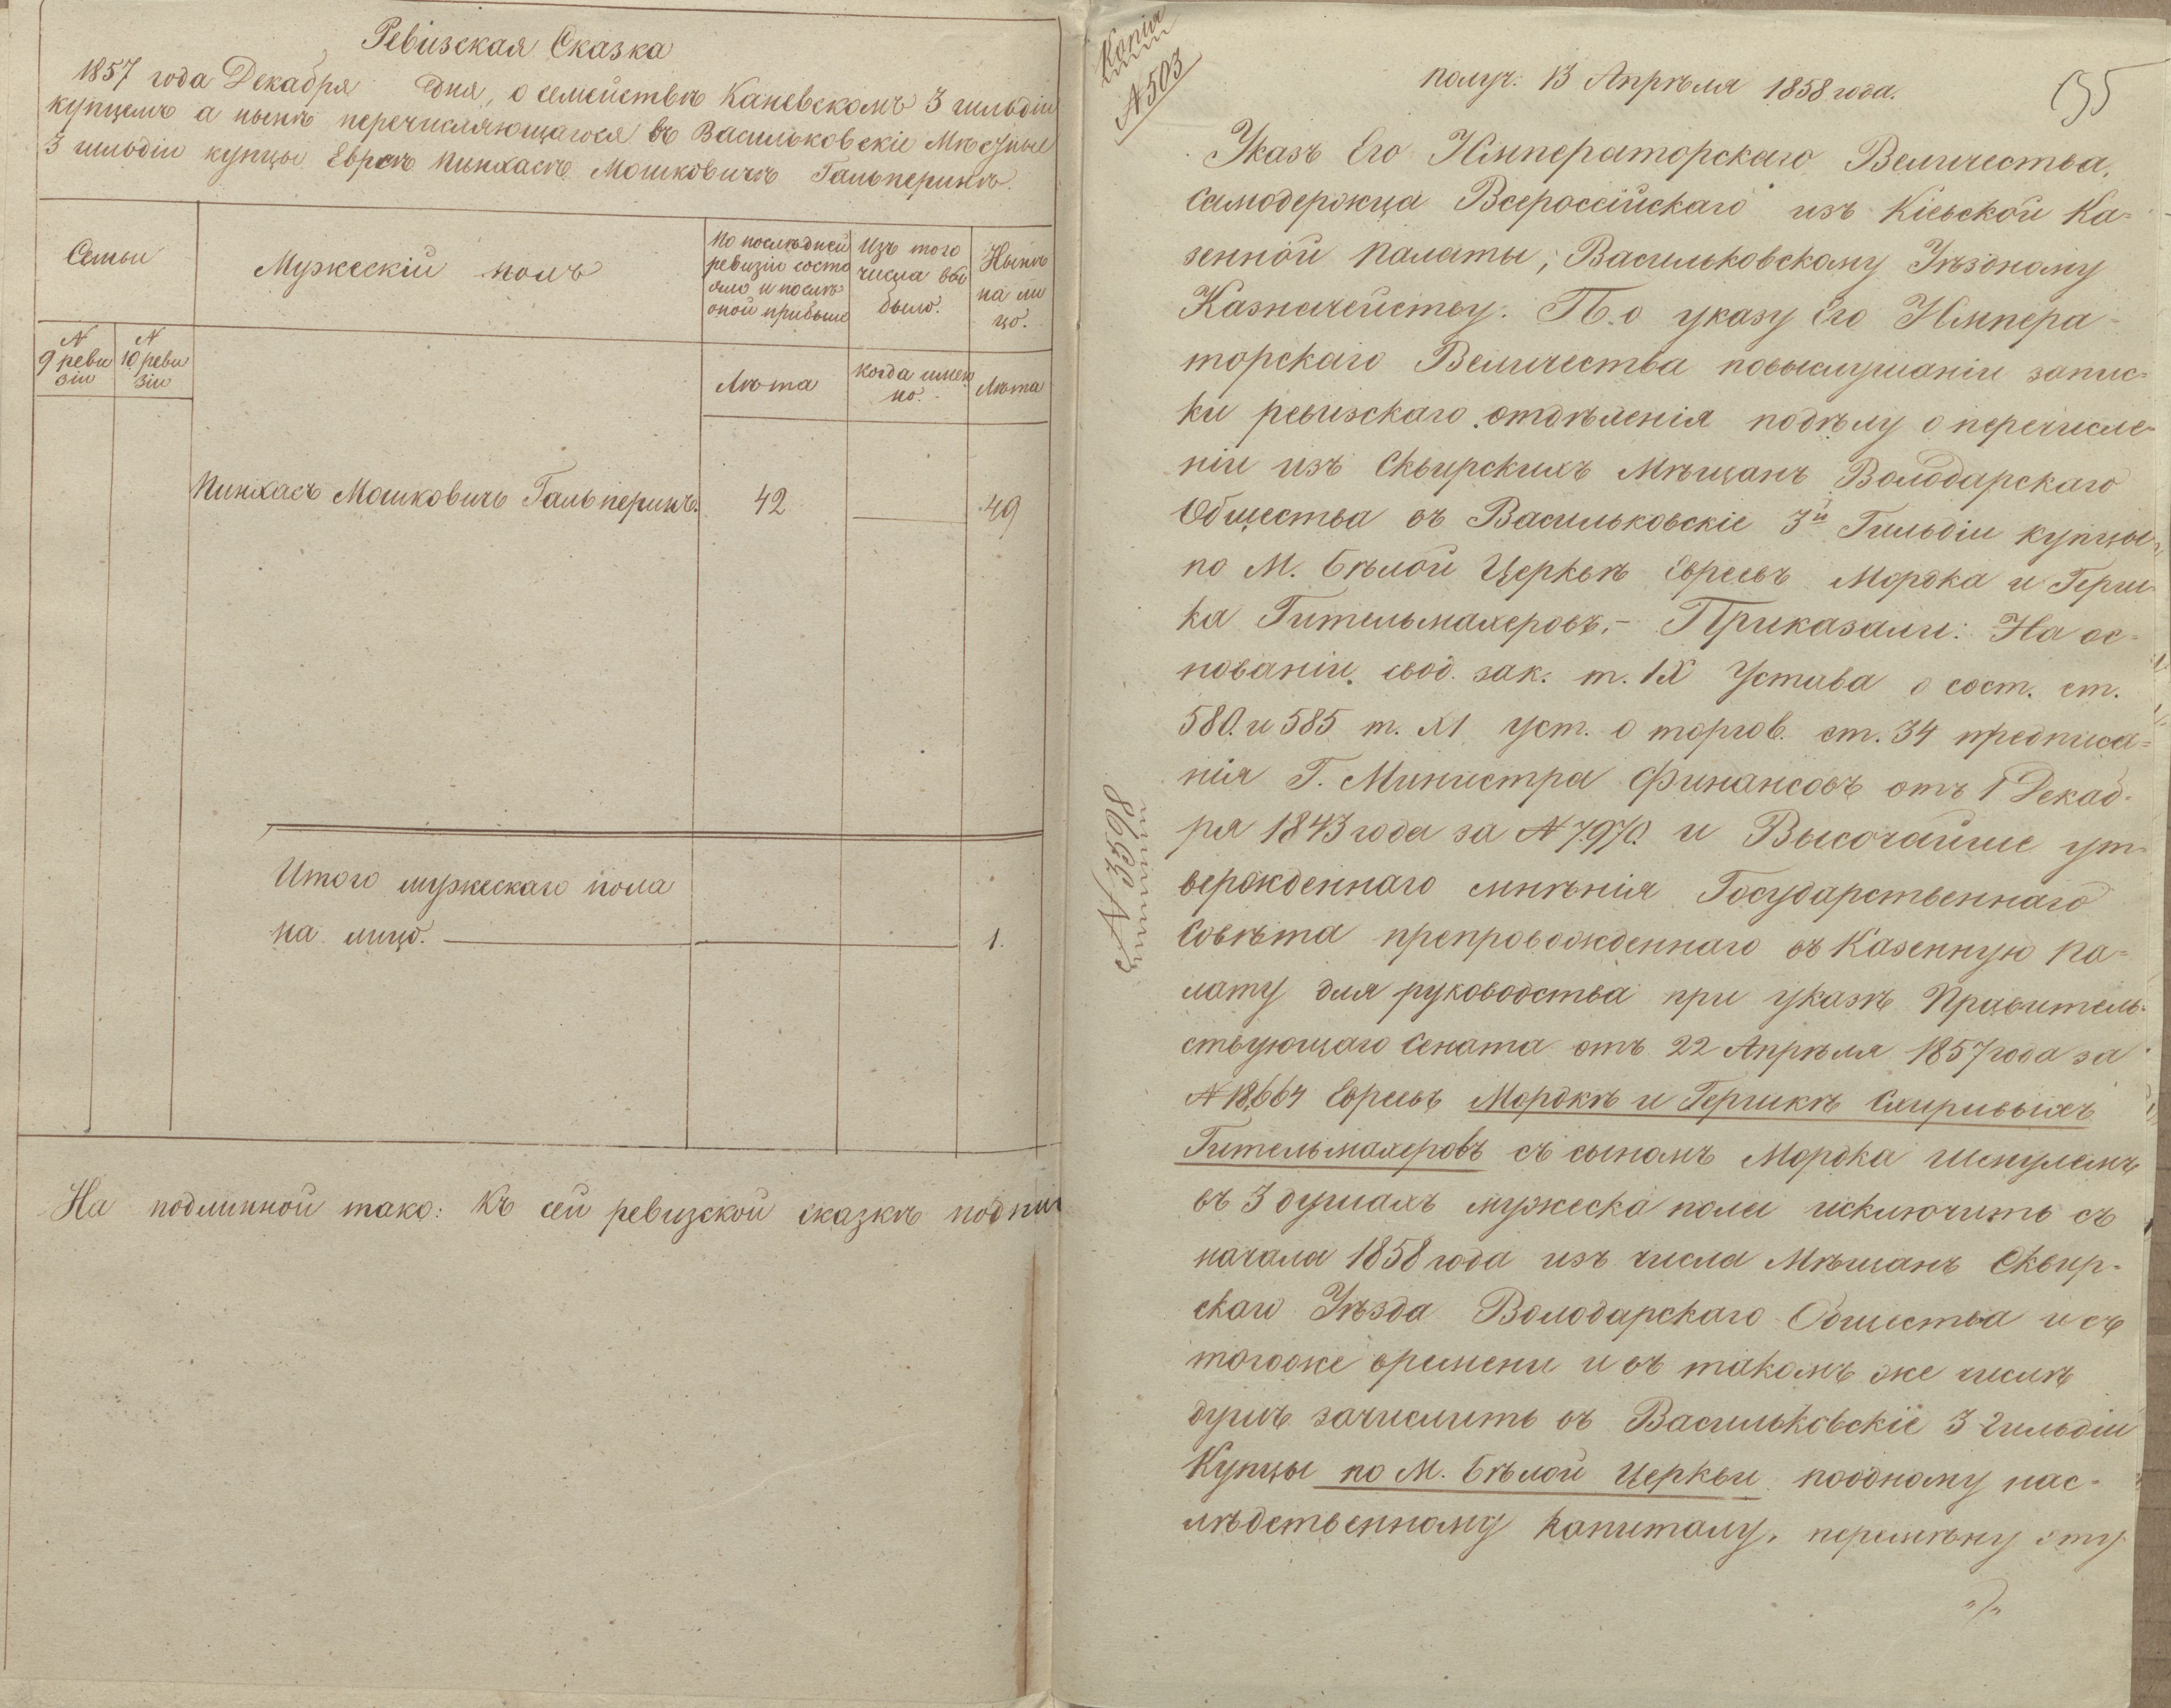 Ревизская Сказка
1857 года Декабря дня, о семействѣ Каневскомъ 3 гильдіи
купцомъ а нынѣ перечисляющагося въ Васильковскіе Мѣстные
3 гильдіи купцы Евреѣ Пинхасѣ Мошковичѣ Гальперинѣ.
Семьи
Мужескій полъ
По послѣдней
ревизіи состо
яло и послѣ
оной прибыло
Изъ того
числа вы
было.
Нынѣ
на ли
цо.
N
9 реви
зіи
N
10 реви
зіи
Лѣта
когда имен
но.
Лѣта
Пинхасъ Мошковичъ Гальперинъ.
42
49
Итого мужескаго пола
на лицо.
1.
На подлинной тако: Къ сей ревизской сказкѣ подпи
Копія
N 503
получ. 13 Апрѣля 1858 года.
Указъ Его Императорскаго Величества,
Самодержца Всероссійскаго изъ Кіевской Ка-
зенной Палаты, Васильковскому Уѣздному
Казначейству. По указу Его Импера-
торскаго Величества повыслушаніи запис-
ки ревизскаго отдѣленія подѣлу о перечисле-
ніи изъ Сквирскихъ Мѣщанъ Володарскаго
Общества въ Васильковскіе 3й Гильдіи купцы
по М. Бѣлой Церквѣ Евреевъ Мордка и Герш-
ка Гительмахеровъ.- Приказали: На ос-
нованіи свод. зак. т. IX Устава о сост. ст.
580. и 585 т. XI уст. о торгов. ст. 34 предписа-
нія Г. Министра Финансовъ отъ 1 Декаб-
ря 1843 года за N 7970. и Высочайше ут-
вержденнаго мнѣнія Государственнаго
Совѣта препровожденнаго въ Казенную Па-
лату для руководства при указѣ Правитель-
ствующаго Сената отъ 22 Апрѣля 1857 года за
N 18,664 Евреевъ Мордкѣ и Гершкѣ
Гительмахеровъ съ сыномъ Мордка Шмулемъ
въ 3 душахъ мужеска пола исключить съ
начала 1858 года изъ числа Мѣщанъ Сквир-
скаго Уѣзда Володарскаго Общества и съ
тогоже времени и въ такомъ же числѣ
душъ зачислить въ Васильковскіе 3 гильдіи
Купцы по М. Бѣлой Церкви поодному нас-
лѣдственному капиталу. перемѣну эту